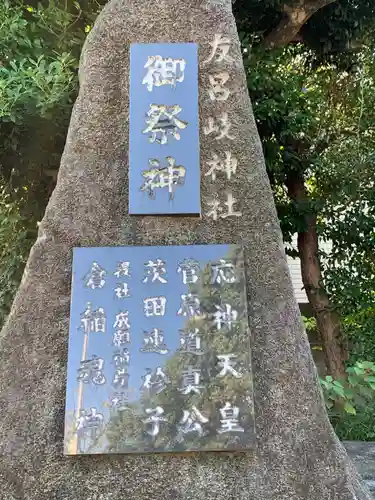 友呂岐神社
御祭神
応神天皇
菅原道真公
茨田連衫子
社 成願稲荷社
倉稲魂神